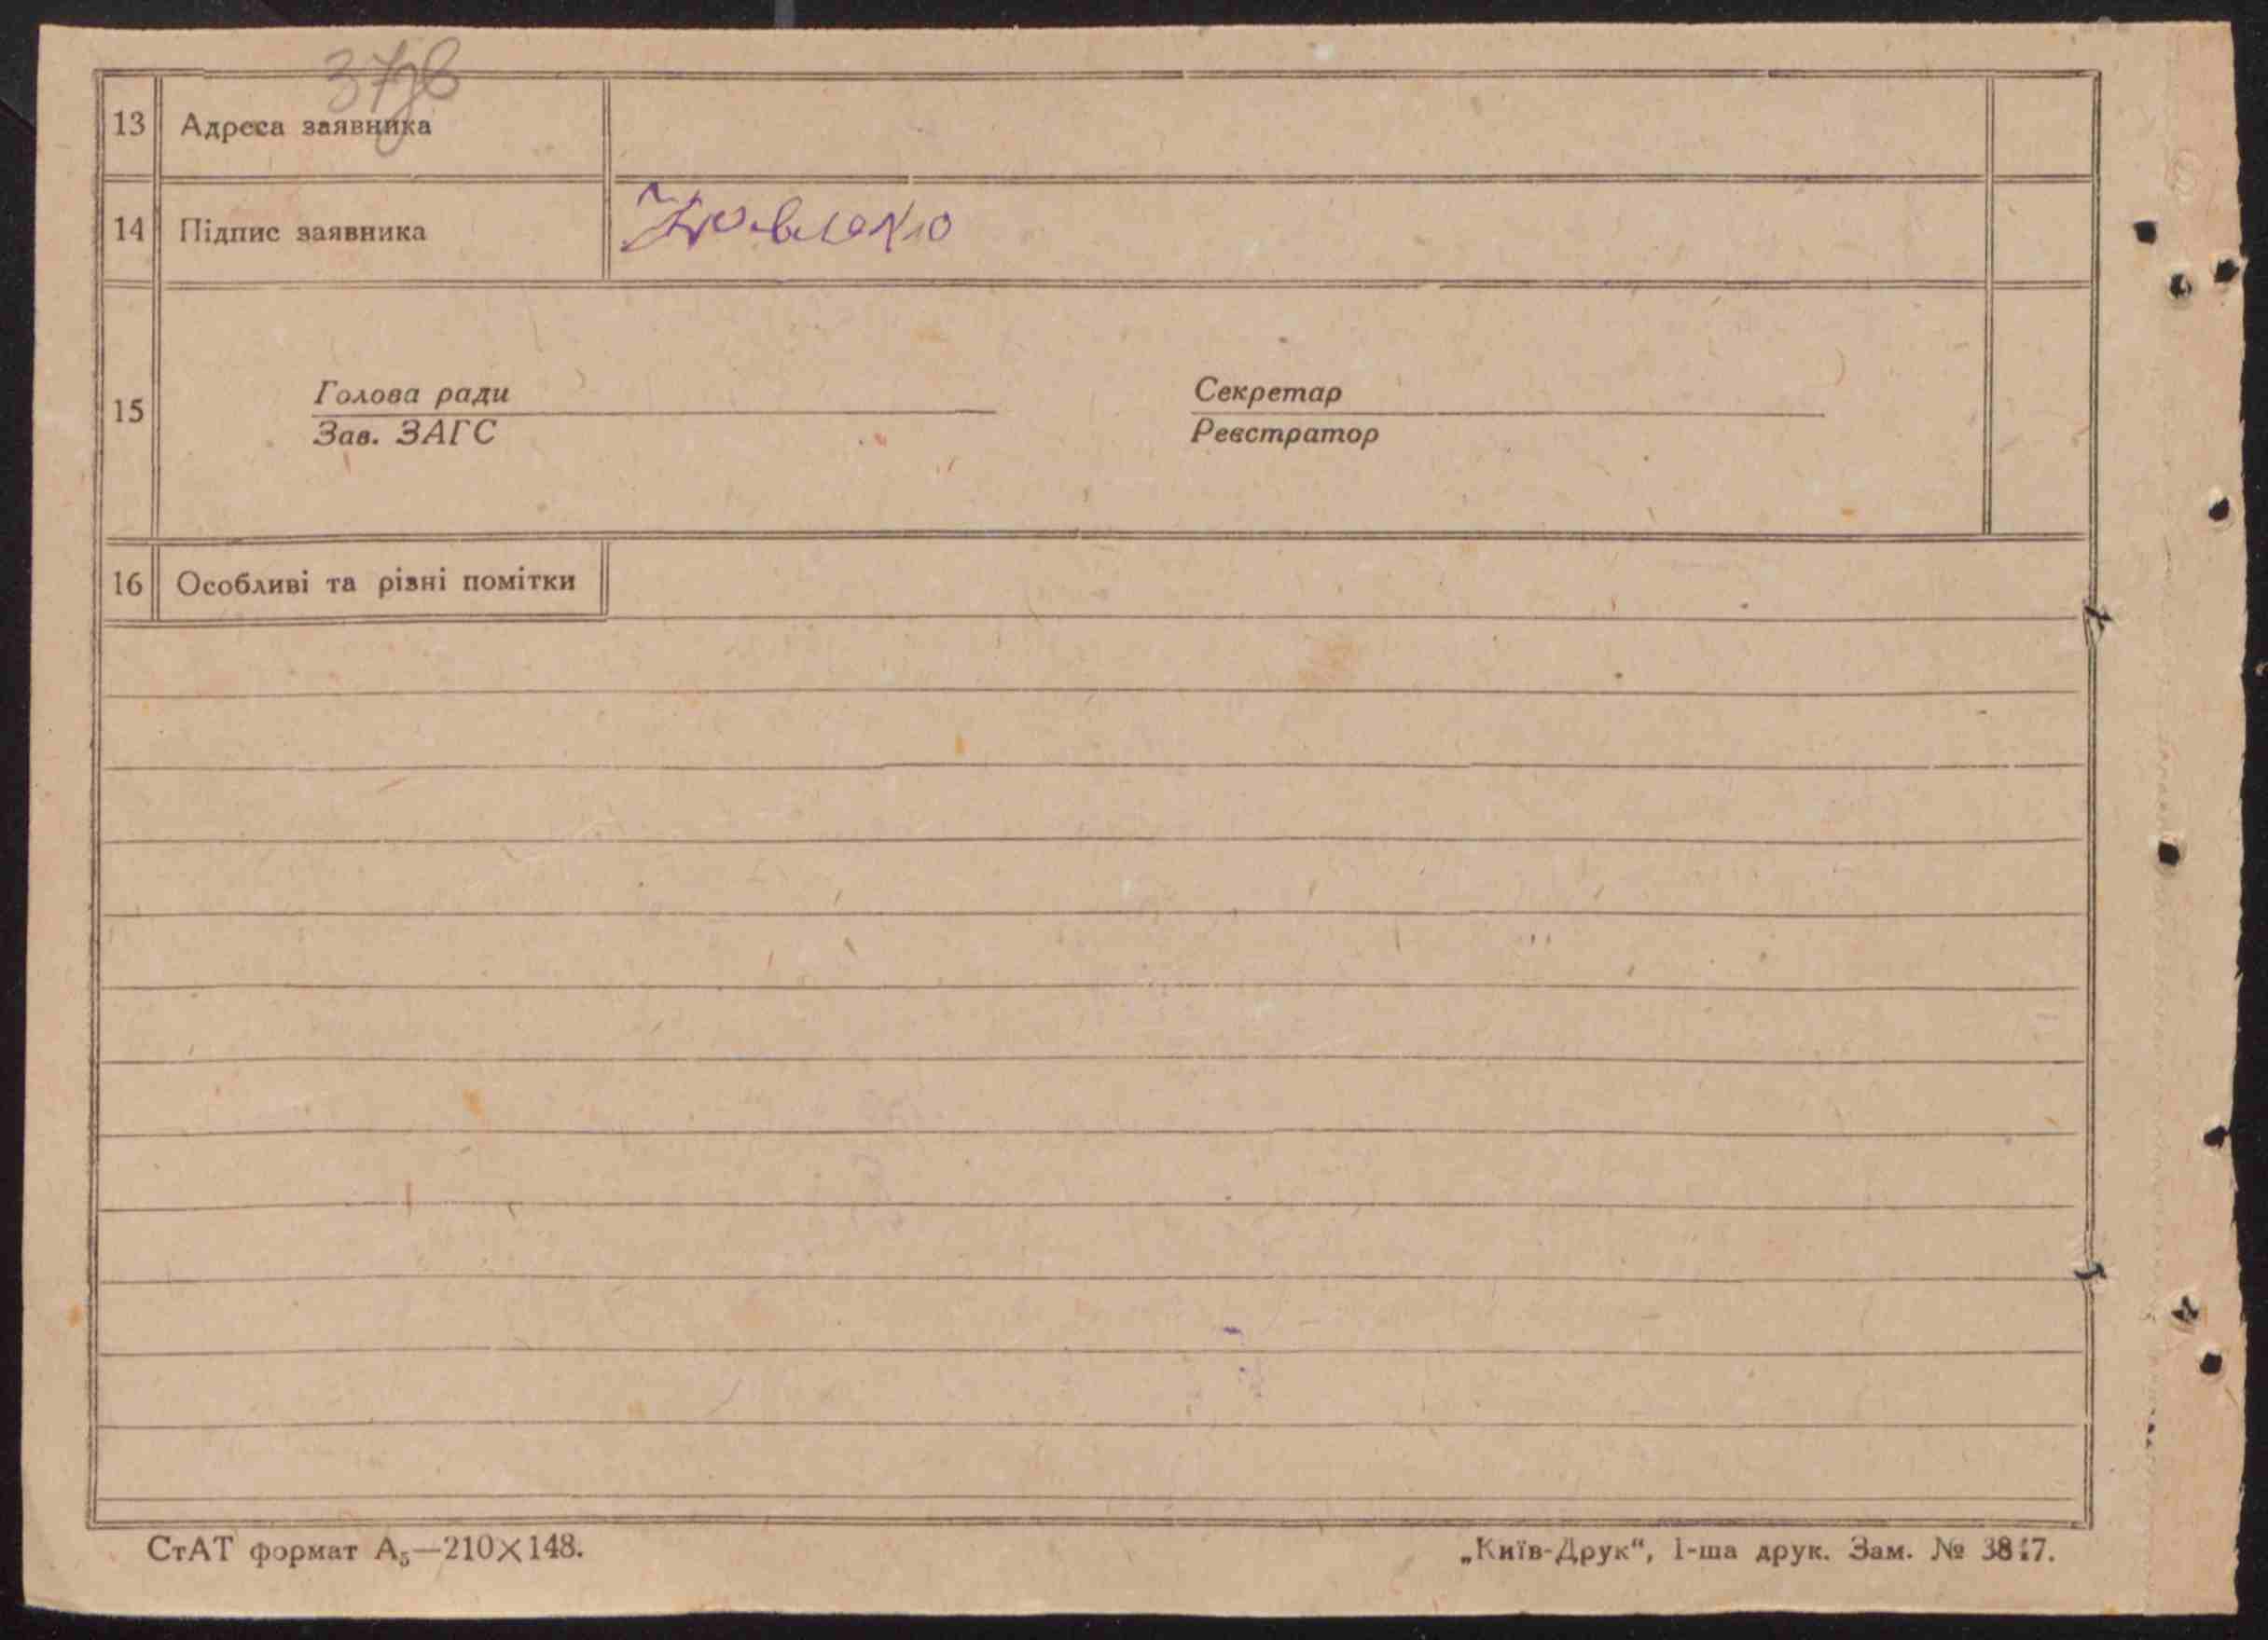 13 Адреса заявника
14 Підпис заявника
15 Голова ради
Зав. ЗАГС
Секретар
Реєстратор
16 Особливі та різні помітки
СтАТ формат А₅—210×148.
„Київ-Друк“, 1-ша друк. Зам. №